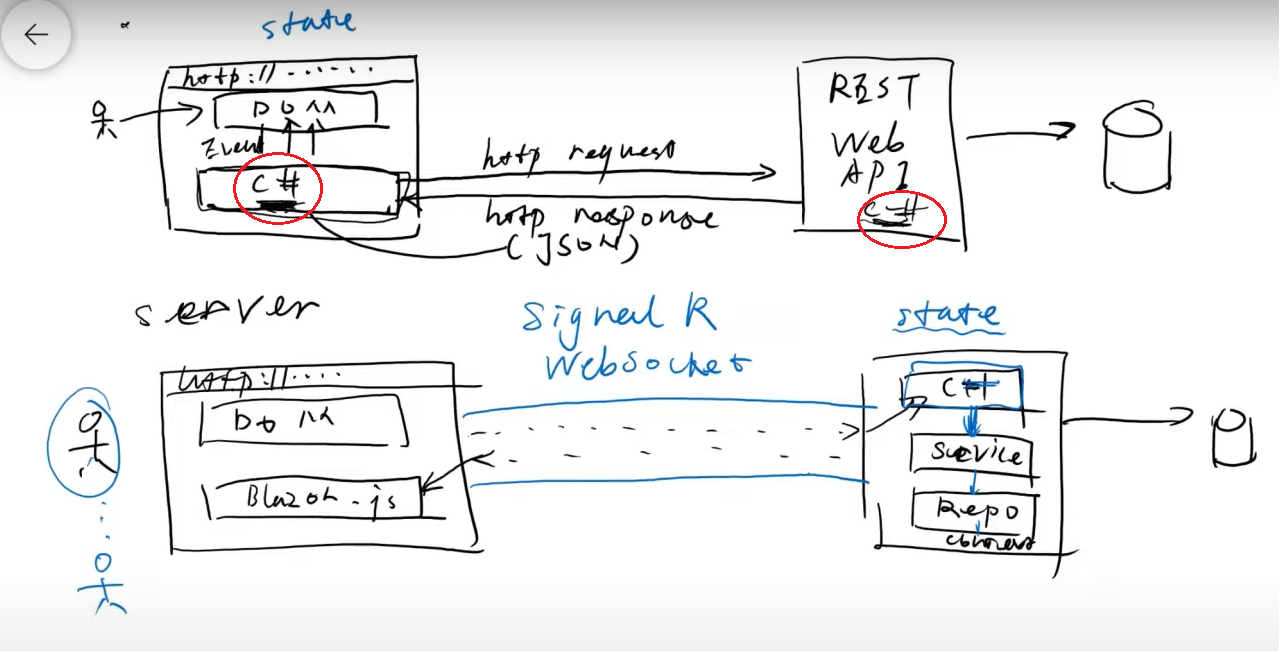 state
http://......
DOM
Event
C#
http request
http response
(JSON)
REST
Web
API
C#
server
Signal R
WebSocket
state
http://....
DOM
Blazor.js
C#
Service
Repo